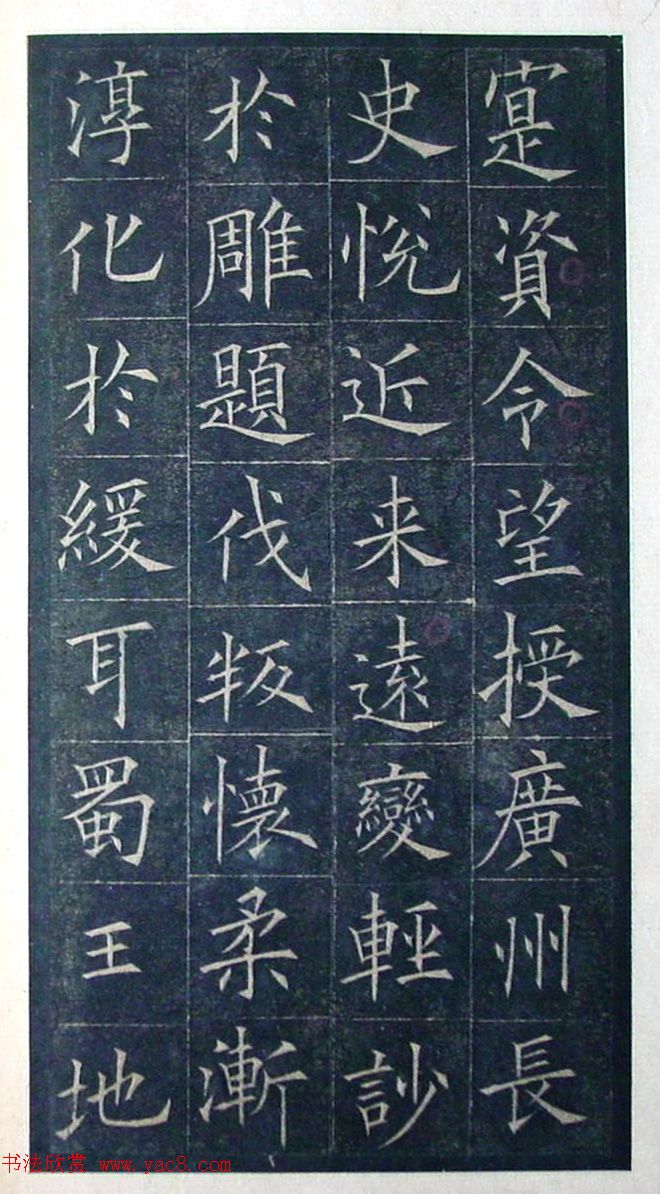 寔資令望授廣州長
史悦近来遠變輕訬
於雕題伐叛懷柔漸
淳化於緩耳蜀王地
书法欣赏 www.yac8.com